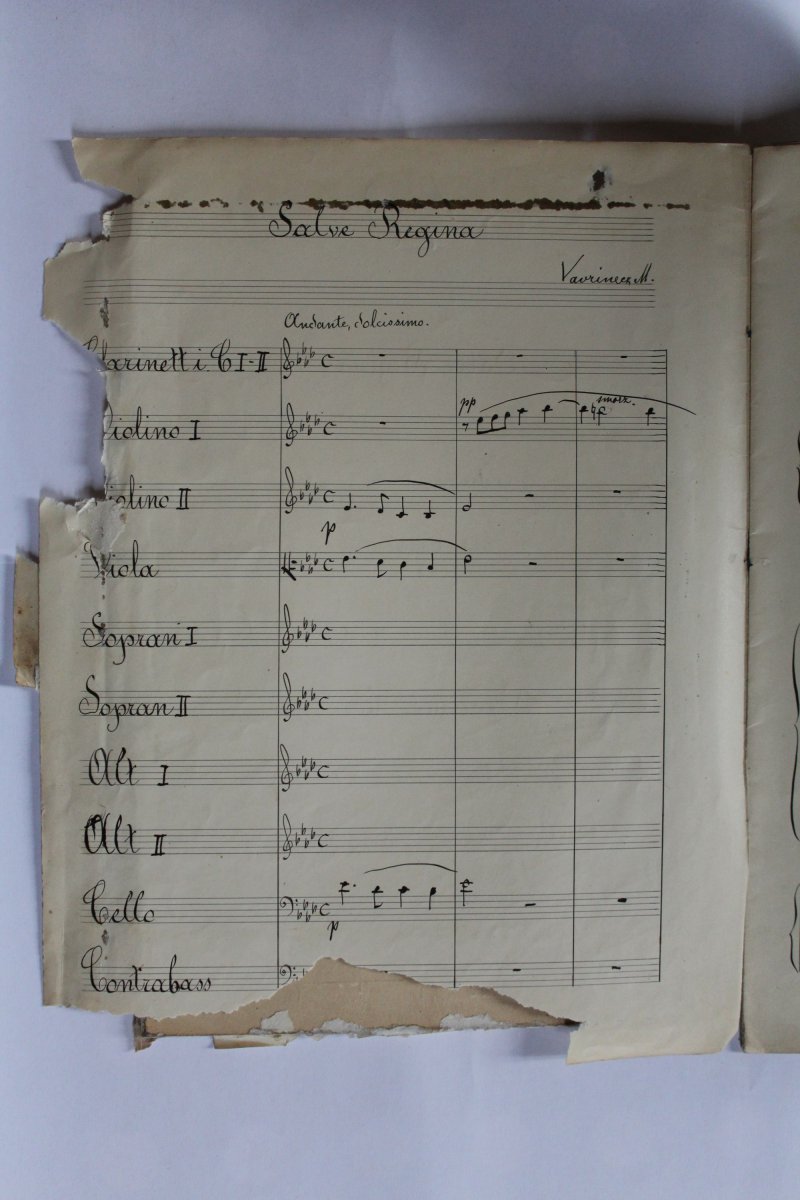 Salve Regina
Vavrinecz M.
Andante, dolcissimo.
Clarinetti. C I-II
pp
smorz.
Violino I
Violino II
p
Viola
Sopran I
Sopran II
Alt I
Alt II
Cello
p
Contrabass